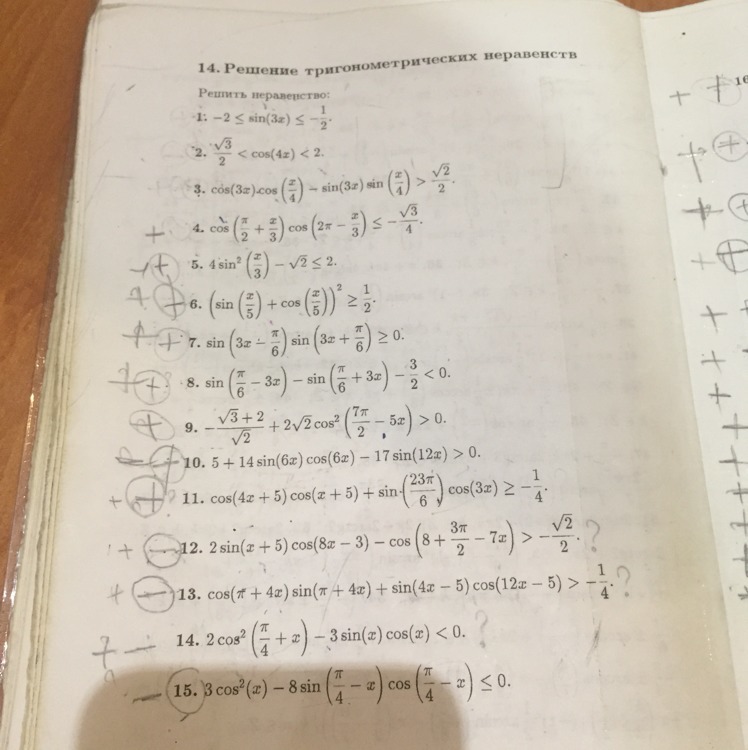 14. Решение тригонометрических неравенств
Решить неравенство:
1. −2 ≤ sin(3x) ≤ −1/2.
2. √3/2 < cos(4x) < 2.
3. cos(3x) cos(x/4) − sin(3x) sin(x/4) > √2/2.
+ 4. cos(π/2 + x/3) cos(2π − x/3) ≤ −√3/4.
5. 4 sin²(x/3) − √2 ≤ 2.
6. (sin(x/5) + cos(x/5))² ≥ 1/2.
7. sin(3x − π/6) sin(3x + π/6) ≥ 0.
8. sin(π/6 − 3x) − sin(π/6 + 3x) − 3/2 < 0.
9. −(√3 + 2)/√2 + 2√2 cos²(7π/2 − 5x) > 0.
10. 5 + 14 sin(6x) cos(6x) − 17 sin(12x) > 0.
11. cos(4x + 5) cos(x + 5) + sin(23π/6) cos(3x) ≥ −1/4.
12. 2 sin(x + 5) cos(8x − 3) − cos(8 + 3π/2 − 7x) > −√2/2. ?
13. cos(π + 4x) sin(π + 4x) + sin(4x − 5) cos(12x − 5) > −1/4. ?
14. 2 cos²(π/4 + x) − 3 sin(x) cos(x) < 0. ?
15. 3 cos²(x) − 8 sin(π/4 − x) cos(π/4 − x) ≤ 0.
16